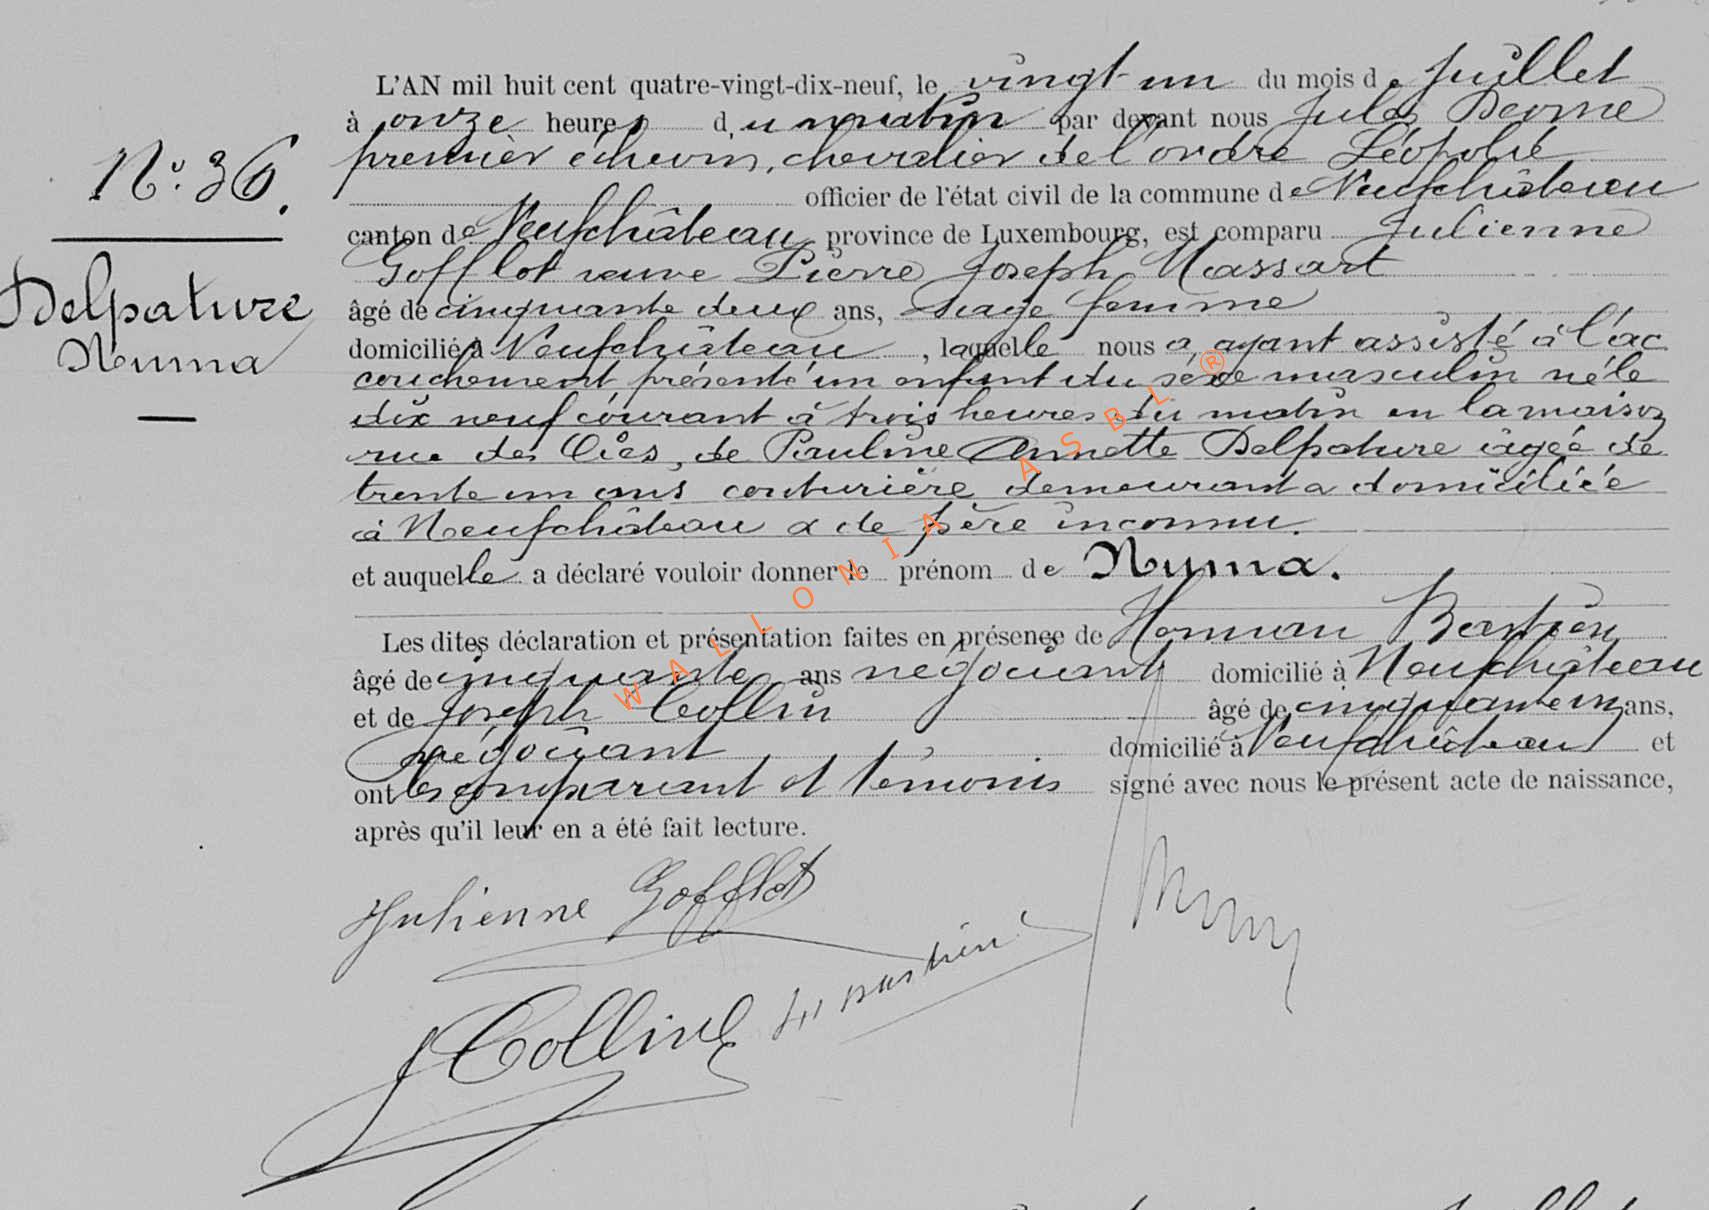 L'AN mil huit cent quatre-vingt-dix-neuf, le vingt-un du mois de Juillet
à onze heures du matin par devant nous Jules
premier échevin, chevalier de l'ordre Léopold
N° 36.
officier de l'état civil de la commune de Neufchâteau
canton de Neufchâteau, province de Luxembourg, est comparu Julienne
Gofflot veuve Pierre Joseph Massart
Delpature
Numa
âgé de cinquante deux ans, sage femme
domicilié à Neufchâteau, laquelle nous a, ayant assisté à l'ac
couchement présenté un enfant du sexe masculin né le
dix neuf courant à trois heures du matin en la maison
rue des Oies, de Pauline Annette Delpature âgée de
trente un ans couturière demeurant & domiciliée
à Neufchâteau & de père inconnu.
et auquel le a déclaré vouloir donner le prénom de Numa.
Les dites déclaration et présentation faites en présence de Herman Bastien
âgé de cinquante ans négociant domicilié à Neufchâteau
et de Joseph Collin âgé de cinquante un ans,
négociant domicilié à Neufchâteau et
ont les comparant et témoins signé avec nous le présent acte de naissance,
après qu'il leur en a été fait lecture.
Julienne Gofflot
H Bastien
J Collin
WALLONIA ASBL ®